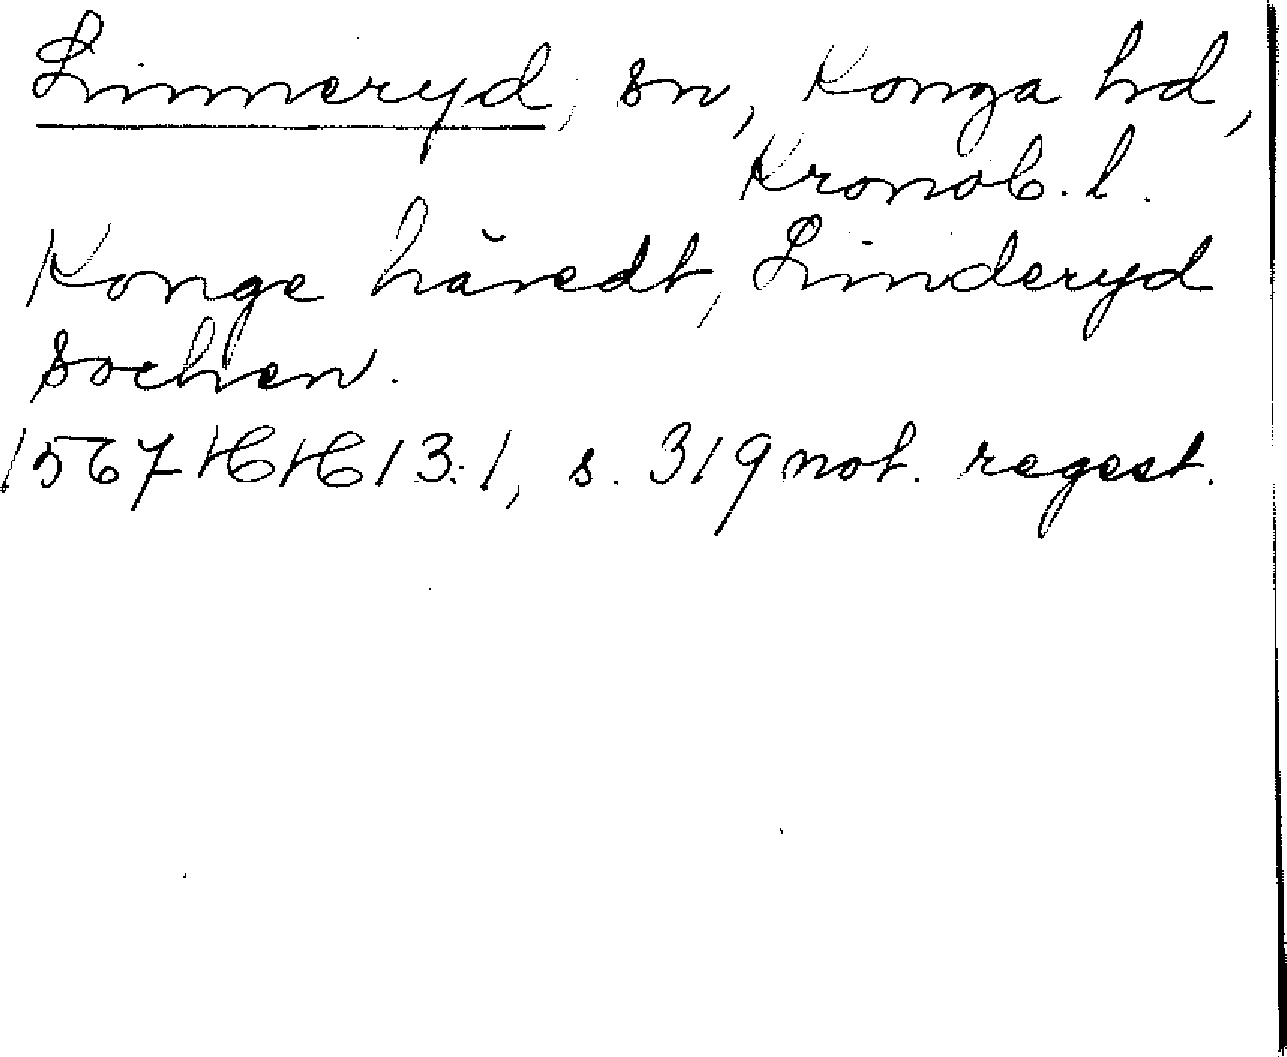 Linneryd, sn, Konga hd,
Kronob. l.
Konge häredt, Linderyd
sochen.
1567 HH 13:1, s. 319 not. regest.